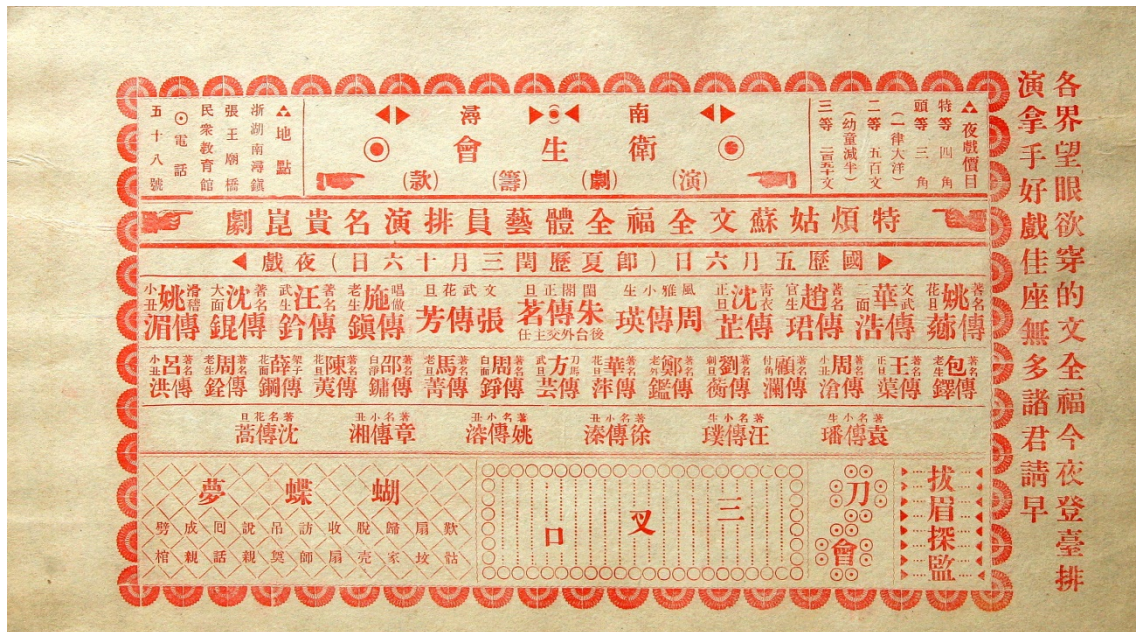 各界望眼欲穿的文全福今夜登臺排
演拿手好戲佳座無多諸君請早
夜戲價目
特等 四角
頭等 三角
(一律大洋)
二等 五百文
(幼童減半)
三等 二百五十文
南潯
衛生會
(演)(劇)(籌)(款)
地點
浙湖南潯鎮
張王廟橋
民衆教育館
電話
五十八號
特煩姑蘇文全福全體藝員排演名貴崑劇
國歷五月六日(卽夏歷閏三月十六日)夜戲
著名花旦 姚傳薌
文武二面 華傳浩
著名官生 趙傳珺
青衣正旦 沈傳芷
風雅小生 周傳瑛
閨閣正旦 朱傳茗 後台外交主任
文武花旦 張傳芳
唱做老生 施傳鎭
著名武生 汪傳鈐
著名大面 沈傳錕
滑稽小丑 姚傳湄
著名老生 包傳鐸
著名正旦 王傳蕖
著名小丑 周傳滄
著名付角 顧傳瀾
著名刺旦 劉傳蘅
著名老外 鄭傳鑑
著名花旦 華傳萍
刀馬武旦 方傳芸
著名白面 周傳錚
著名老旦 馬傳菁
著名白淨 邵傳鏞
著名花旦 陳傳荑
架子花面 薛傳鋼
著名老生 周傳銓
著名小丑 呂傳洪
著名小生 袁傳璠
著名小生 汪傳璞
著名小丑 徐傳溱
著名小丑 姚傳溶
著名小丑 章傳湘
著名花旦 沈傳蒿
拔眉探監
刀會
三叉口
蝴蝶夢
歎骷 扇墳 歸家 脫壳 收扇 訪師 吊奠 說親 回話 成親 劈棺